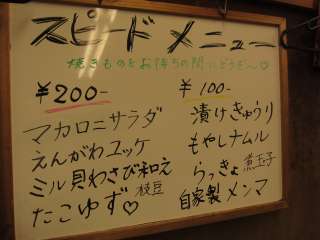 スピードメニュー
焼きものをお待ちの間にどうぞ〜♡
¥200-
マカロニサラダ
えんがわユッケ
ミル貝わさび和え
枝豆
たこゆず♡
¥100-
漬けきゅうり
もやしナムル
煮玉子
らっきょ
自家製メンマ